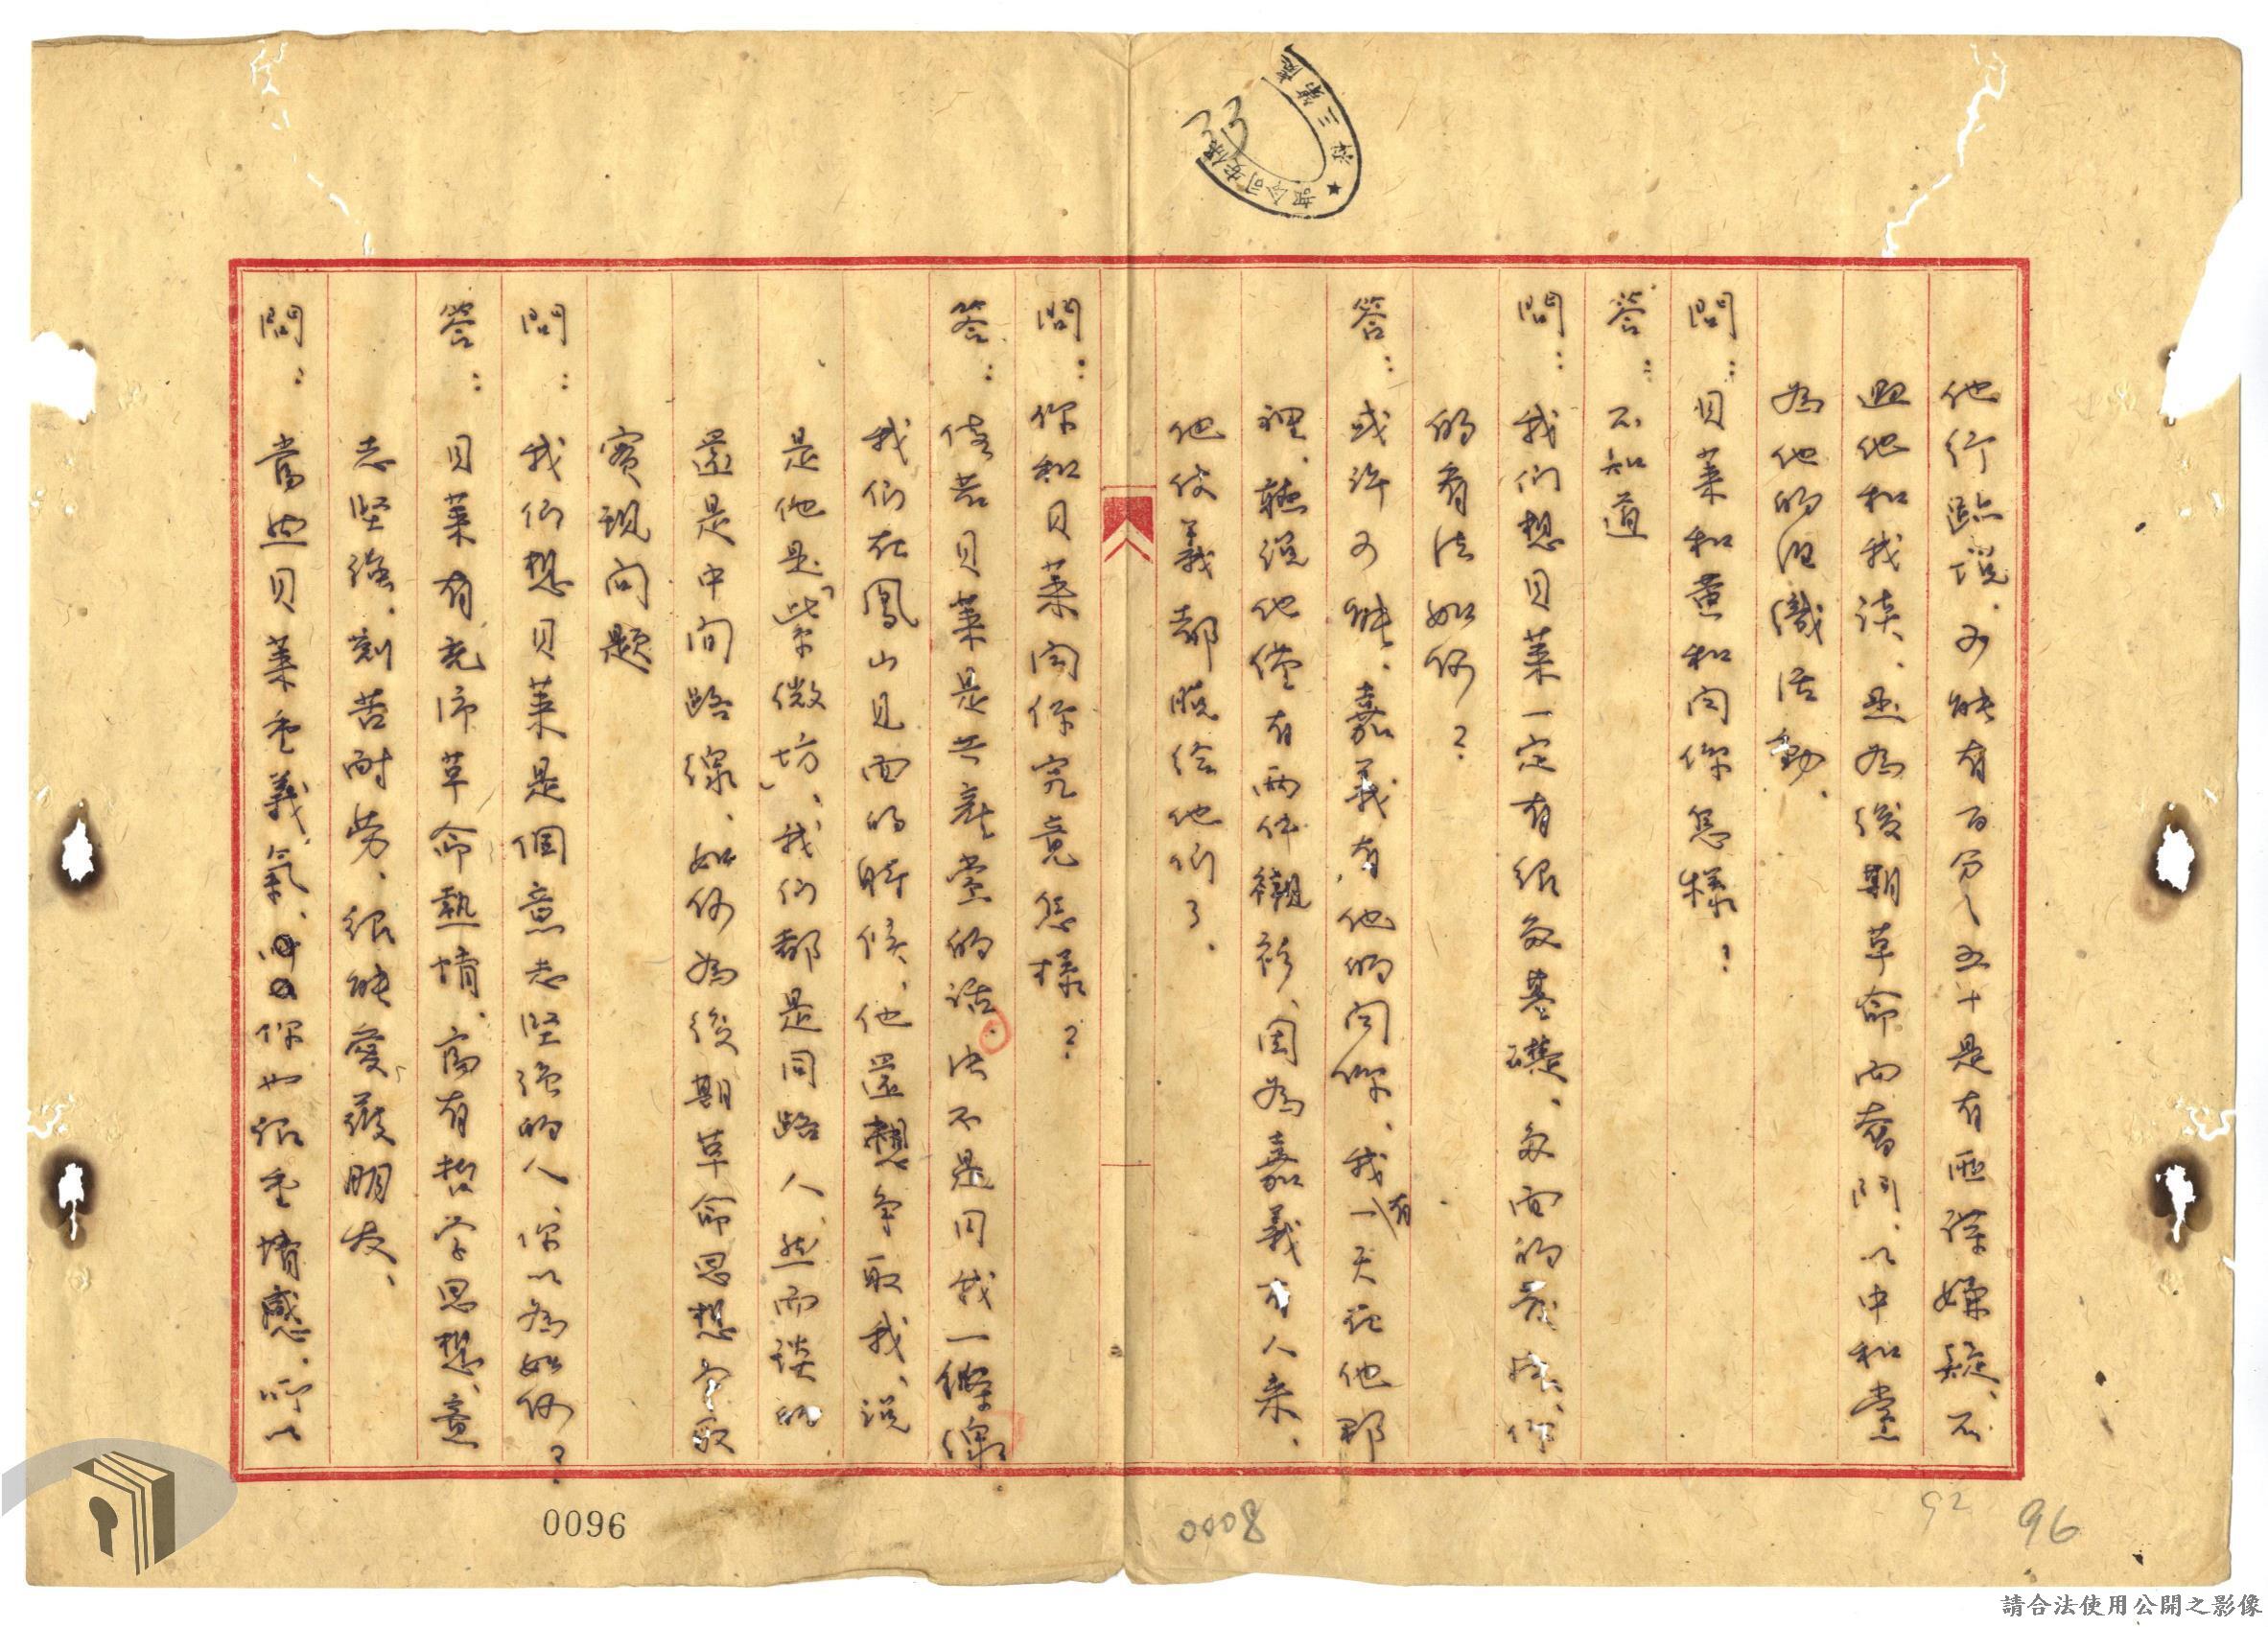 他行踪說，可能有百分之五十是有匪諜嫌疑、不
過他和我談、是為後期革命而奮鬥，以中和黨
為他的組織活動。
問：貝萊和黃和問你怎樣？
答：不知道
問：我們想貝萊一定有很多基礎、多面的發展、你
的看法如何？
答：或許可能、嘉義有他的同伴、我有一天在他那
裡，聽說他僅有兩件襯衫、因為嘉義有人來、
他伕義都脫給他們了、
問：你和貝萊問你究竟怎樣？
答：倘若貝萊是共產黨的話，決不是同我一條線。
我們在鳳山見面的時候、他還想爭取我、說
是他是「紫微坊」、我們都是同路人、然而談的
還是中間路線、如何為後期革命思想爭取
實現問題
問：我們想貝萊是個意志堅強的人、你以為如何？
答：貝萊有充沛革命熱情、富有哲学思想、意
志堅強、刻苦耐勞、很能愛護朋友、
問：當然貝萊重義氣、你也很重情感，所以
0096
0008
92
96
33
請合法使用公開之影像